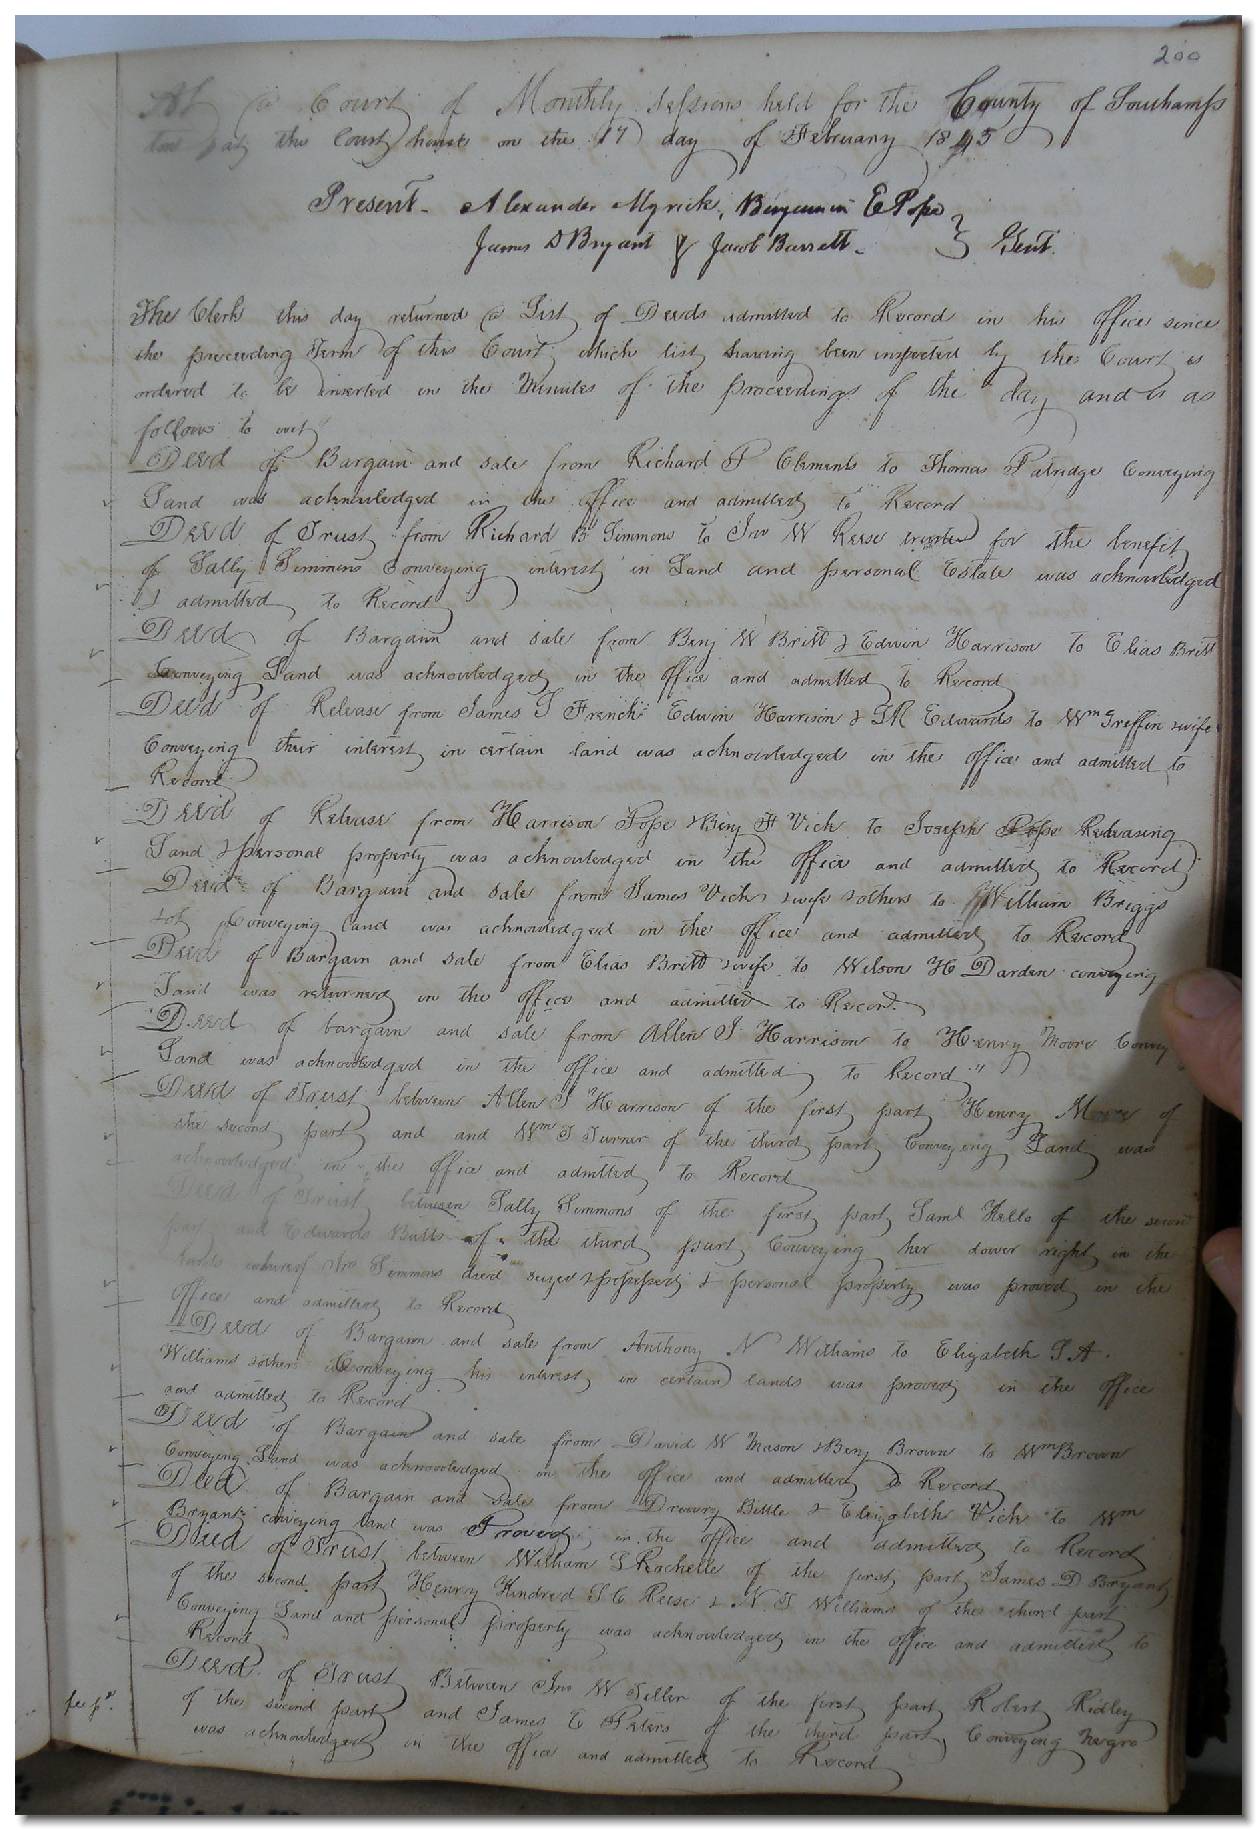 200
At a Court of Monthly Sessions held for the County of Southamp
ton at the Court house on the 17 day of February 1845
Present - Alexander Myrick, Benjamin E Pope
James D Bryant & Jacob Barrett - } Gent.
The Clerk this day returned a List of Deeds admitted to Record in his office since
the preceeding Term of this Court which list having been inspected by the Court is
ordered to be inserted in the Minutes of the proceedings of the day and is as
follows to wit
Deed of Bargain and sale from Richard P Clements to Thomas Patridge Conveying
Land was acknowledged in the office and admitted to Record
Deed of Trust from Richard B Simmons to Jno W Reese for the benefit
of Sally Simmons Conveying interest in Land and personal Estate was acknowledged
& admitted to Record
Deed of Bargain and sale from Benj W Britt & Edwin Harrison to Elias Britt
Conveying Land was acknowledged in the office and admitted to Record
Deed of Release from James S French Edwin Harrison & J R Edwards to Wm Griffin & wife
Conveying their interest in certain land was acknowledged in the office and admitted to
Record
Deed of Release from Harrison Pope & Benj F Vick to Joseph Pope Releasing
Land & personal property was acknowledged in the office and admitted to Record
Deed of Bargain and sale from James Vick & wife & others to William Briggs
Conveying land was acknowledged in the office and admitted to Record
Deed of Bargain and sale from Elias Britt & wife to Wilson H Darden conveying
Land was returned in the office and admitted to Record.
Deed of bargain and sale from Allen S Harrison to Henry Moore Convey
Land was acknowledged in the office and admitted to Record "
Deed of Trust between Allen S Harrison of the first part Henry Moore of
the second part and and Wm T Turner of the third part Conveying Land was
acknowledged in the office and admitted to Record
Deed of Trust between Sally Simmons of the first part Saml Kello of the second
part and Edwards Butts of the third part Conveying her dower right in the
lands whereof Simmons died seized & possessed & personal property was proved in the
office and admitted to Record
Deed of Bargain and sale from Anthony N Williams to Elizabeth S A.
Williams & others Conveying his interest in certain lands was proved in the office
and admitted to Record
Deed of Bargain and sale from David W Mason & Benj Brown to Wm Brown
Conveying Land was acknowledged in the office and admitted to Record
Deed of Bargain and sale from Drewry Bittle & Elizabeth Vick to Wm
Bryant conveying land was Proved in the office and admitted to Record
Deed of Trust between William S Rochelle of the first part James D Bryant
of the second part Henry Kindred S C Reese & N. T Williams of the third part
Conveying Land and personal property was acknowledged in the office and admitted to
Record
Deed of Trust Between Jno W Teller of the first part Robert Ridley
fee pd. of the second part and James E Peters of the third part Conveying negro
was acknowledged in the office and admitted to Record